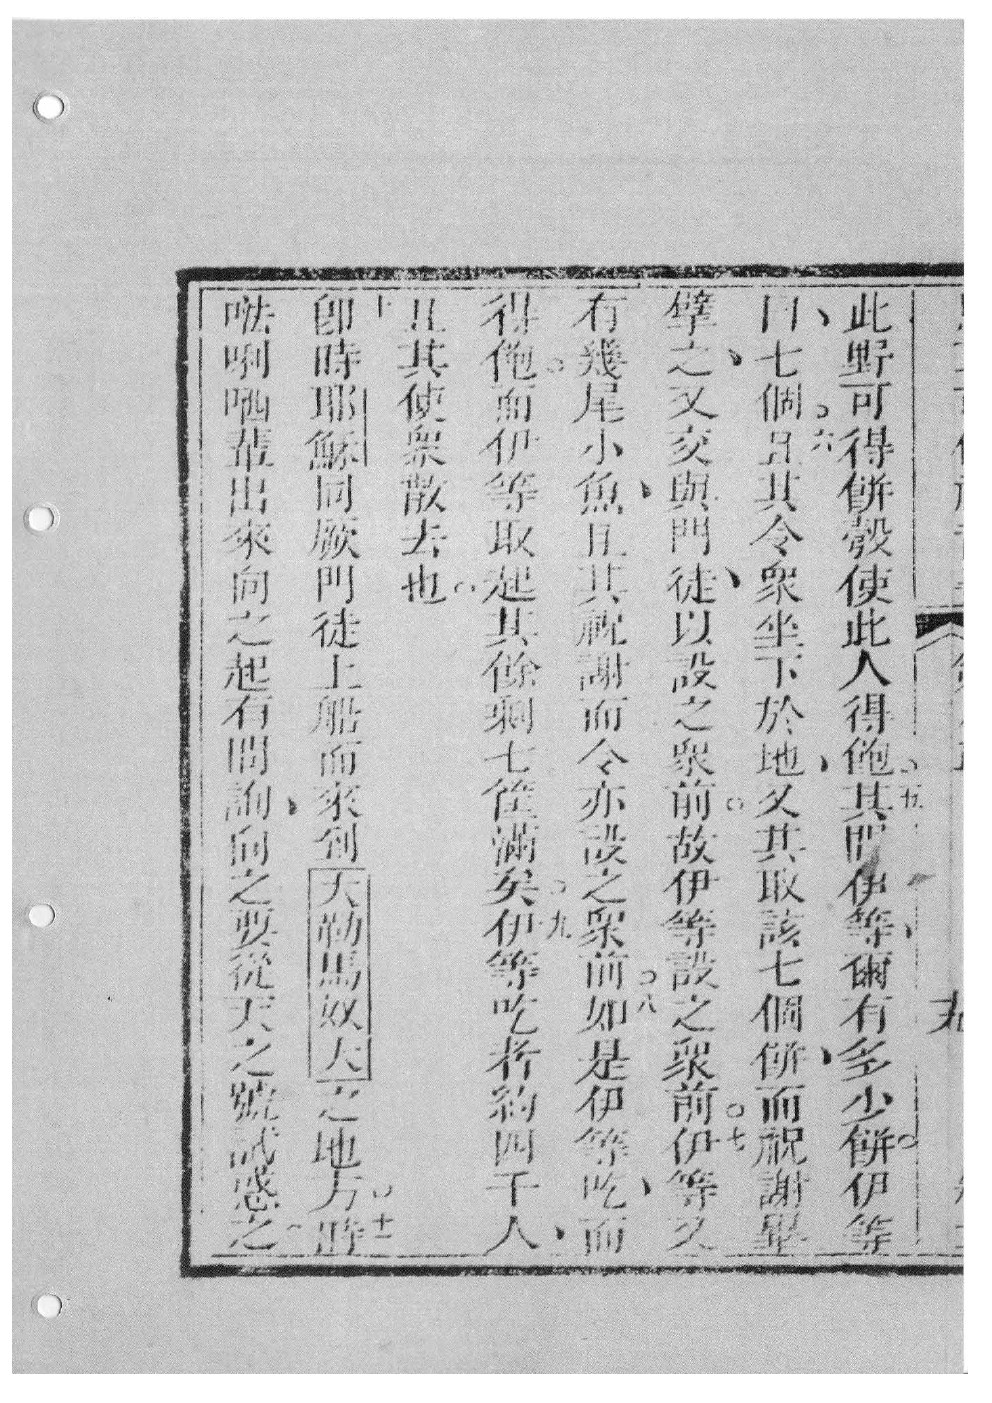 此野可得餅彀使此人得飽五其問伊等爾有多少餅伊等
曰七個六且其令眾坐下於地又其取該七個餅而祝謝畢
擘之又交與門徒以設之眾前故伊等設之眾前七伊等又
有幾尾小魚且其祝謝而令亦設之眾前八如是伊等吃而
得飽而伊等取起其餘剩七筐滿矣九伊等吃者約四千人
且其使眾散去也
十即時耶穌同厥門徒上船而來到大勒馬奴大之地方十一時
𠵽唎哂輩出來向之起有問詢向之要從天之號試惑之